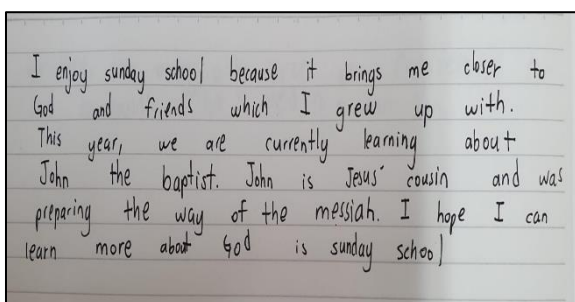 I enjoy sunday school because it brings me closer to
God and friends which I grew up with.
This year, we are currently learning about
John the baptist. John is Jesus' cousin and was
preparing the way of the messiah. I hope I can
learn more about God is sunday school